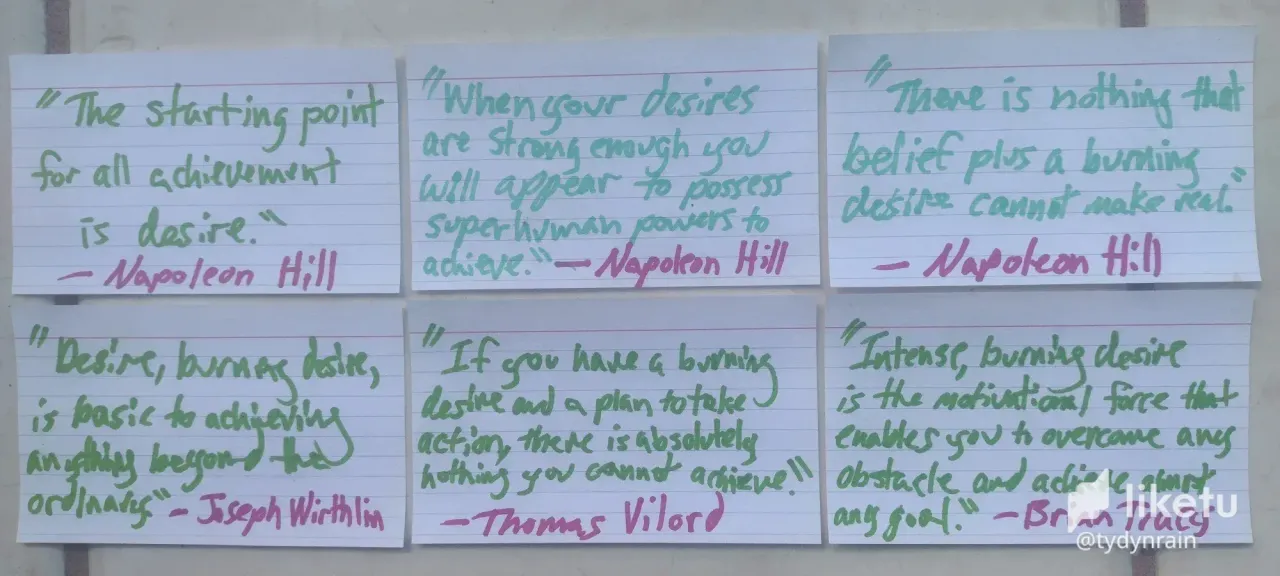 "The starting point
for all achievement
is desire."
— Napoleon Hill
"When your desires
are strong enough you
will appear to possess
superhuman powers to
achieve." — Napoleon Hill
"There is nothing that
belief plus a burning
desire cannot make real."
— Napoleon Hill
"Desire, burning desire,
is basic to achieving
anything beyond the
ordinary" - Joseph Wirthlin
"If you have a burning
desire and a plan to take
action, there is absolutely
nothing you cannot achieve."
- Thomas Vilord
"Intense, burning desire
is the motivational force that
enables you to overcome any
obstacle and achieve almost
any goal." - Brian Tracy
liketu
@tydynrain